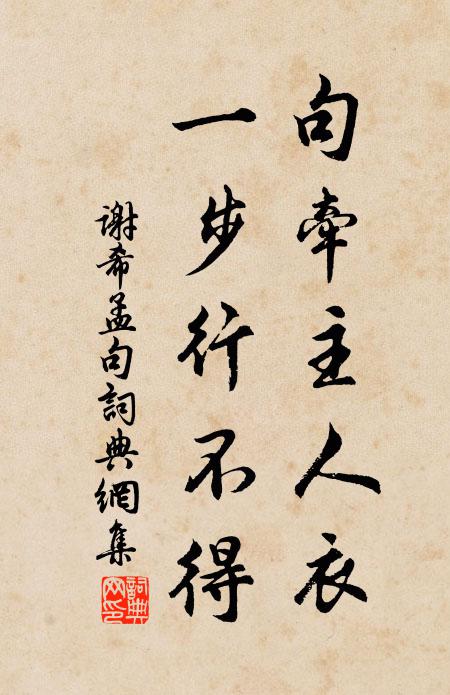 句牽主人衣
一步行不得
謝希孟句詞典網集
詞典
网印